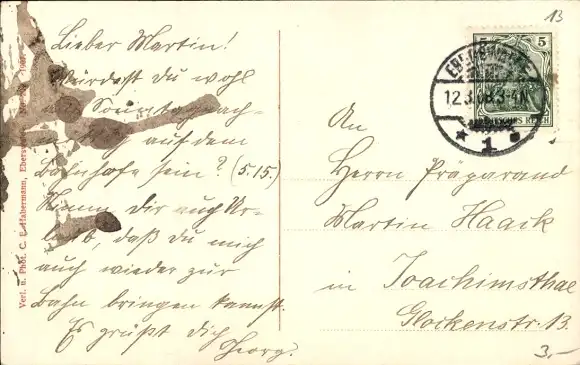 13
Lieber Martin!
Würdest Du wohl
am Sonntagnach-
mittag auf dem
Bahnhofe sein? (5.15.)
Nimm Dir auch Ur-
laub, daß Du mich
auch wieder zur
Bahn bringen kannst.
Es grüßt Dich
Georg.
Verl. u. Phot. C. Habermann, Ebersw
5
5
12.3.08.3-4N.
* 1
An
Herrn Präparand
Martin Haack
in Joachimsthal
Glockenstr. 13.
3,-